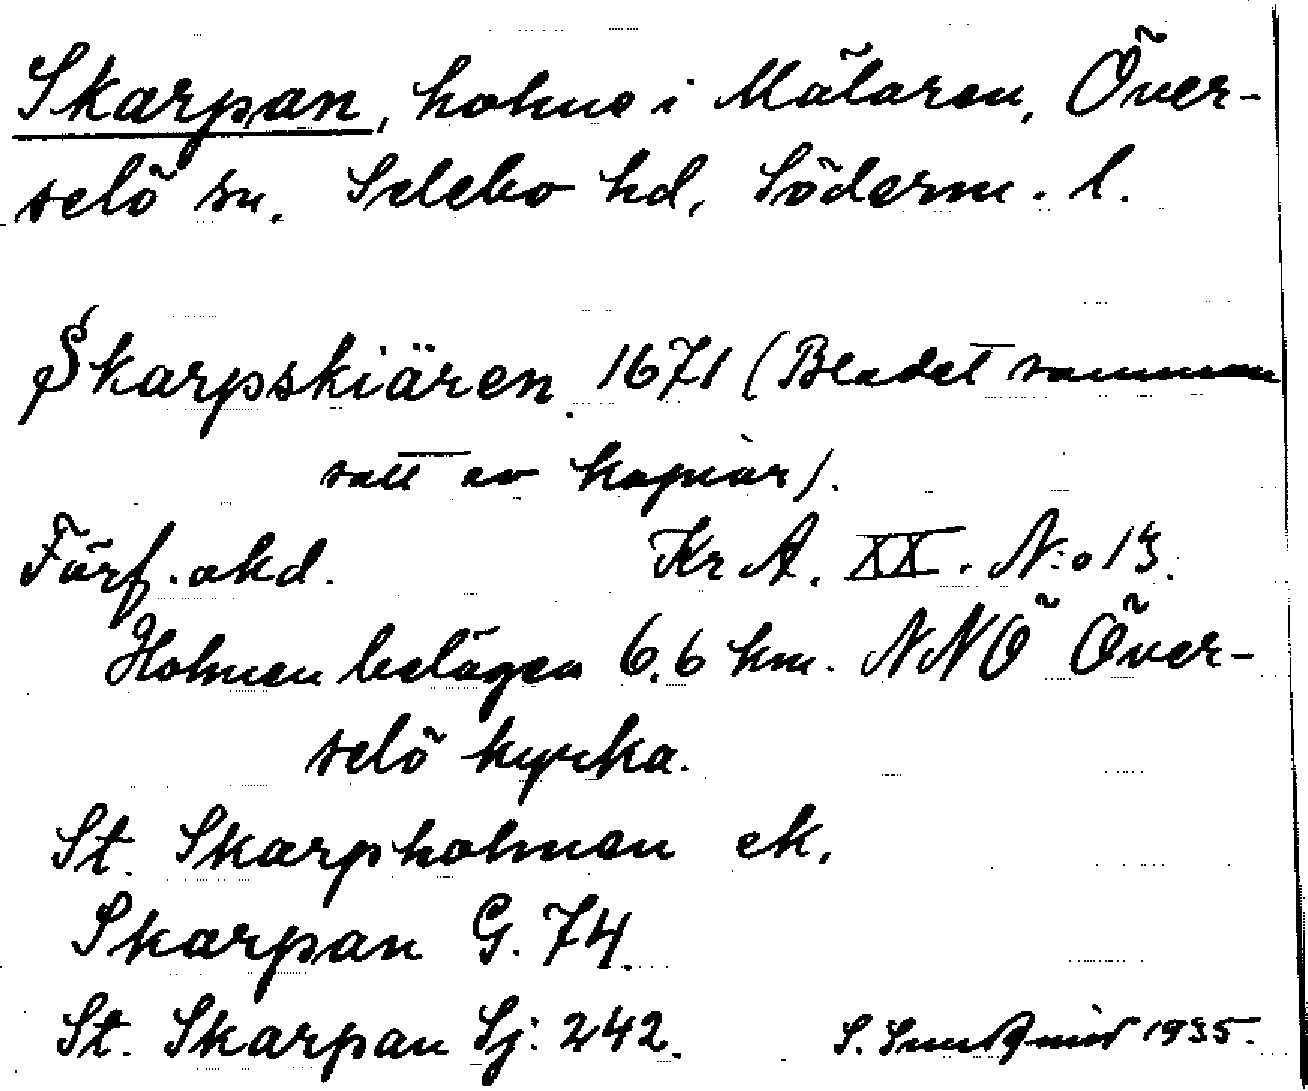 Skarpan, holme i Mälaren, Över-
selö sn. Selebo hd, Söderm. l.
Skarpskiären. 1671 (Bladet samman
satt av kopior).
Förf. akd. Kr A. XX. N:o 13.
Holmen belägen 6,6 km. NNÖ Över-
selö kyrka.
St. Skarpholmen ek.
Skarpan G. 74.
St. Skarpan Sj: 242. S. Sundqvist 1935.